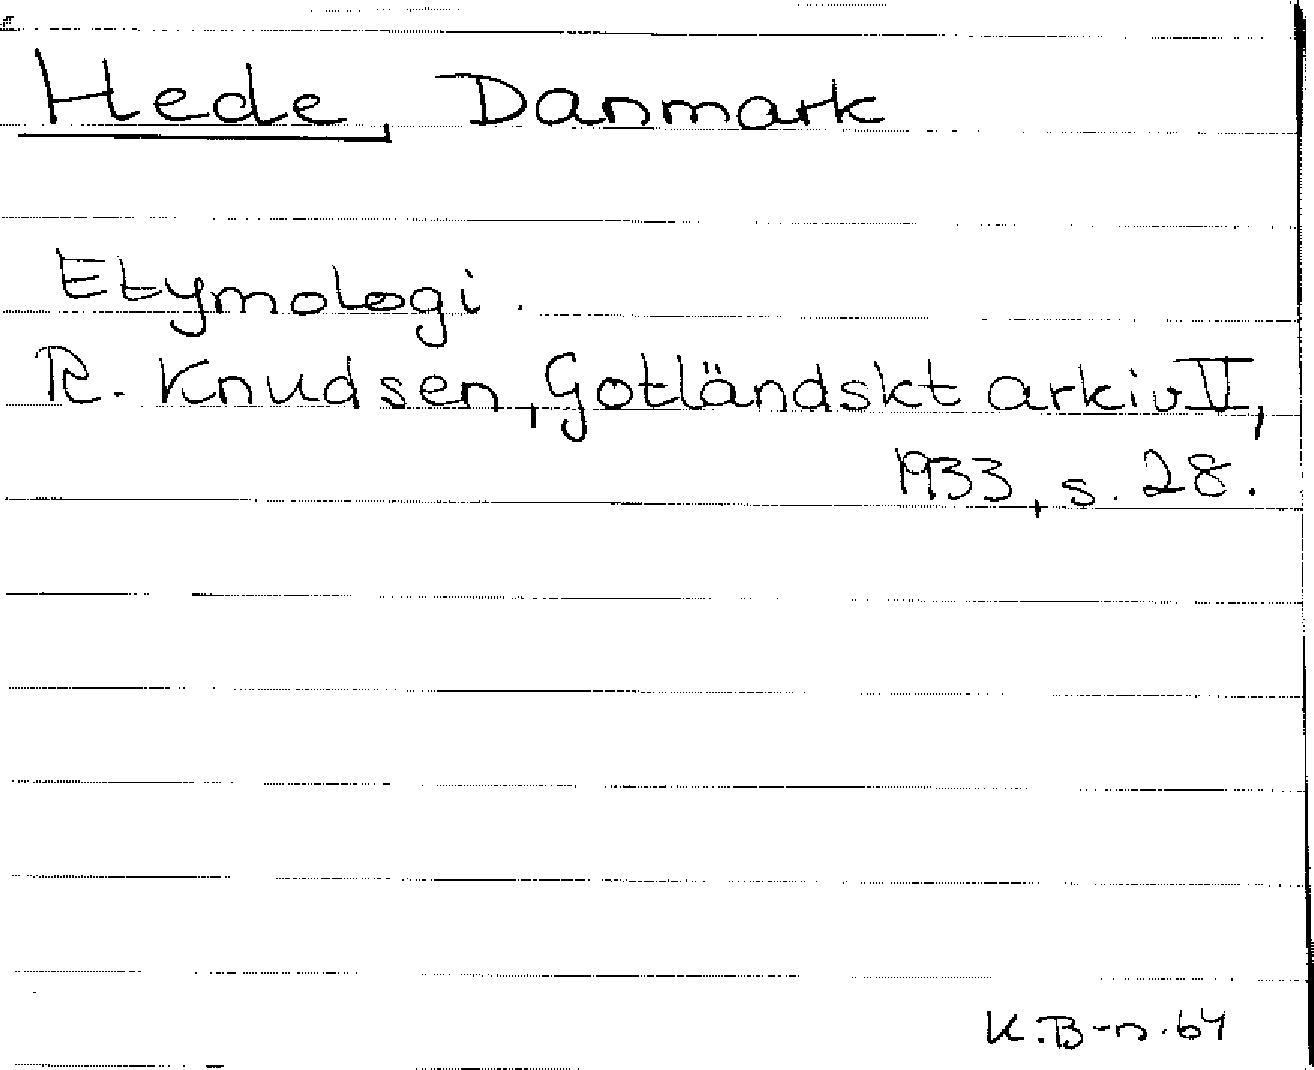 Hede, Danmark
Etymologi.
R. Knudsen, Gotländskt arkiv V,
1933, s. 28.
K.B-n. 64